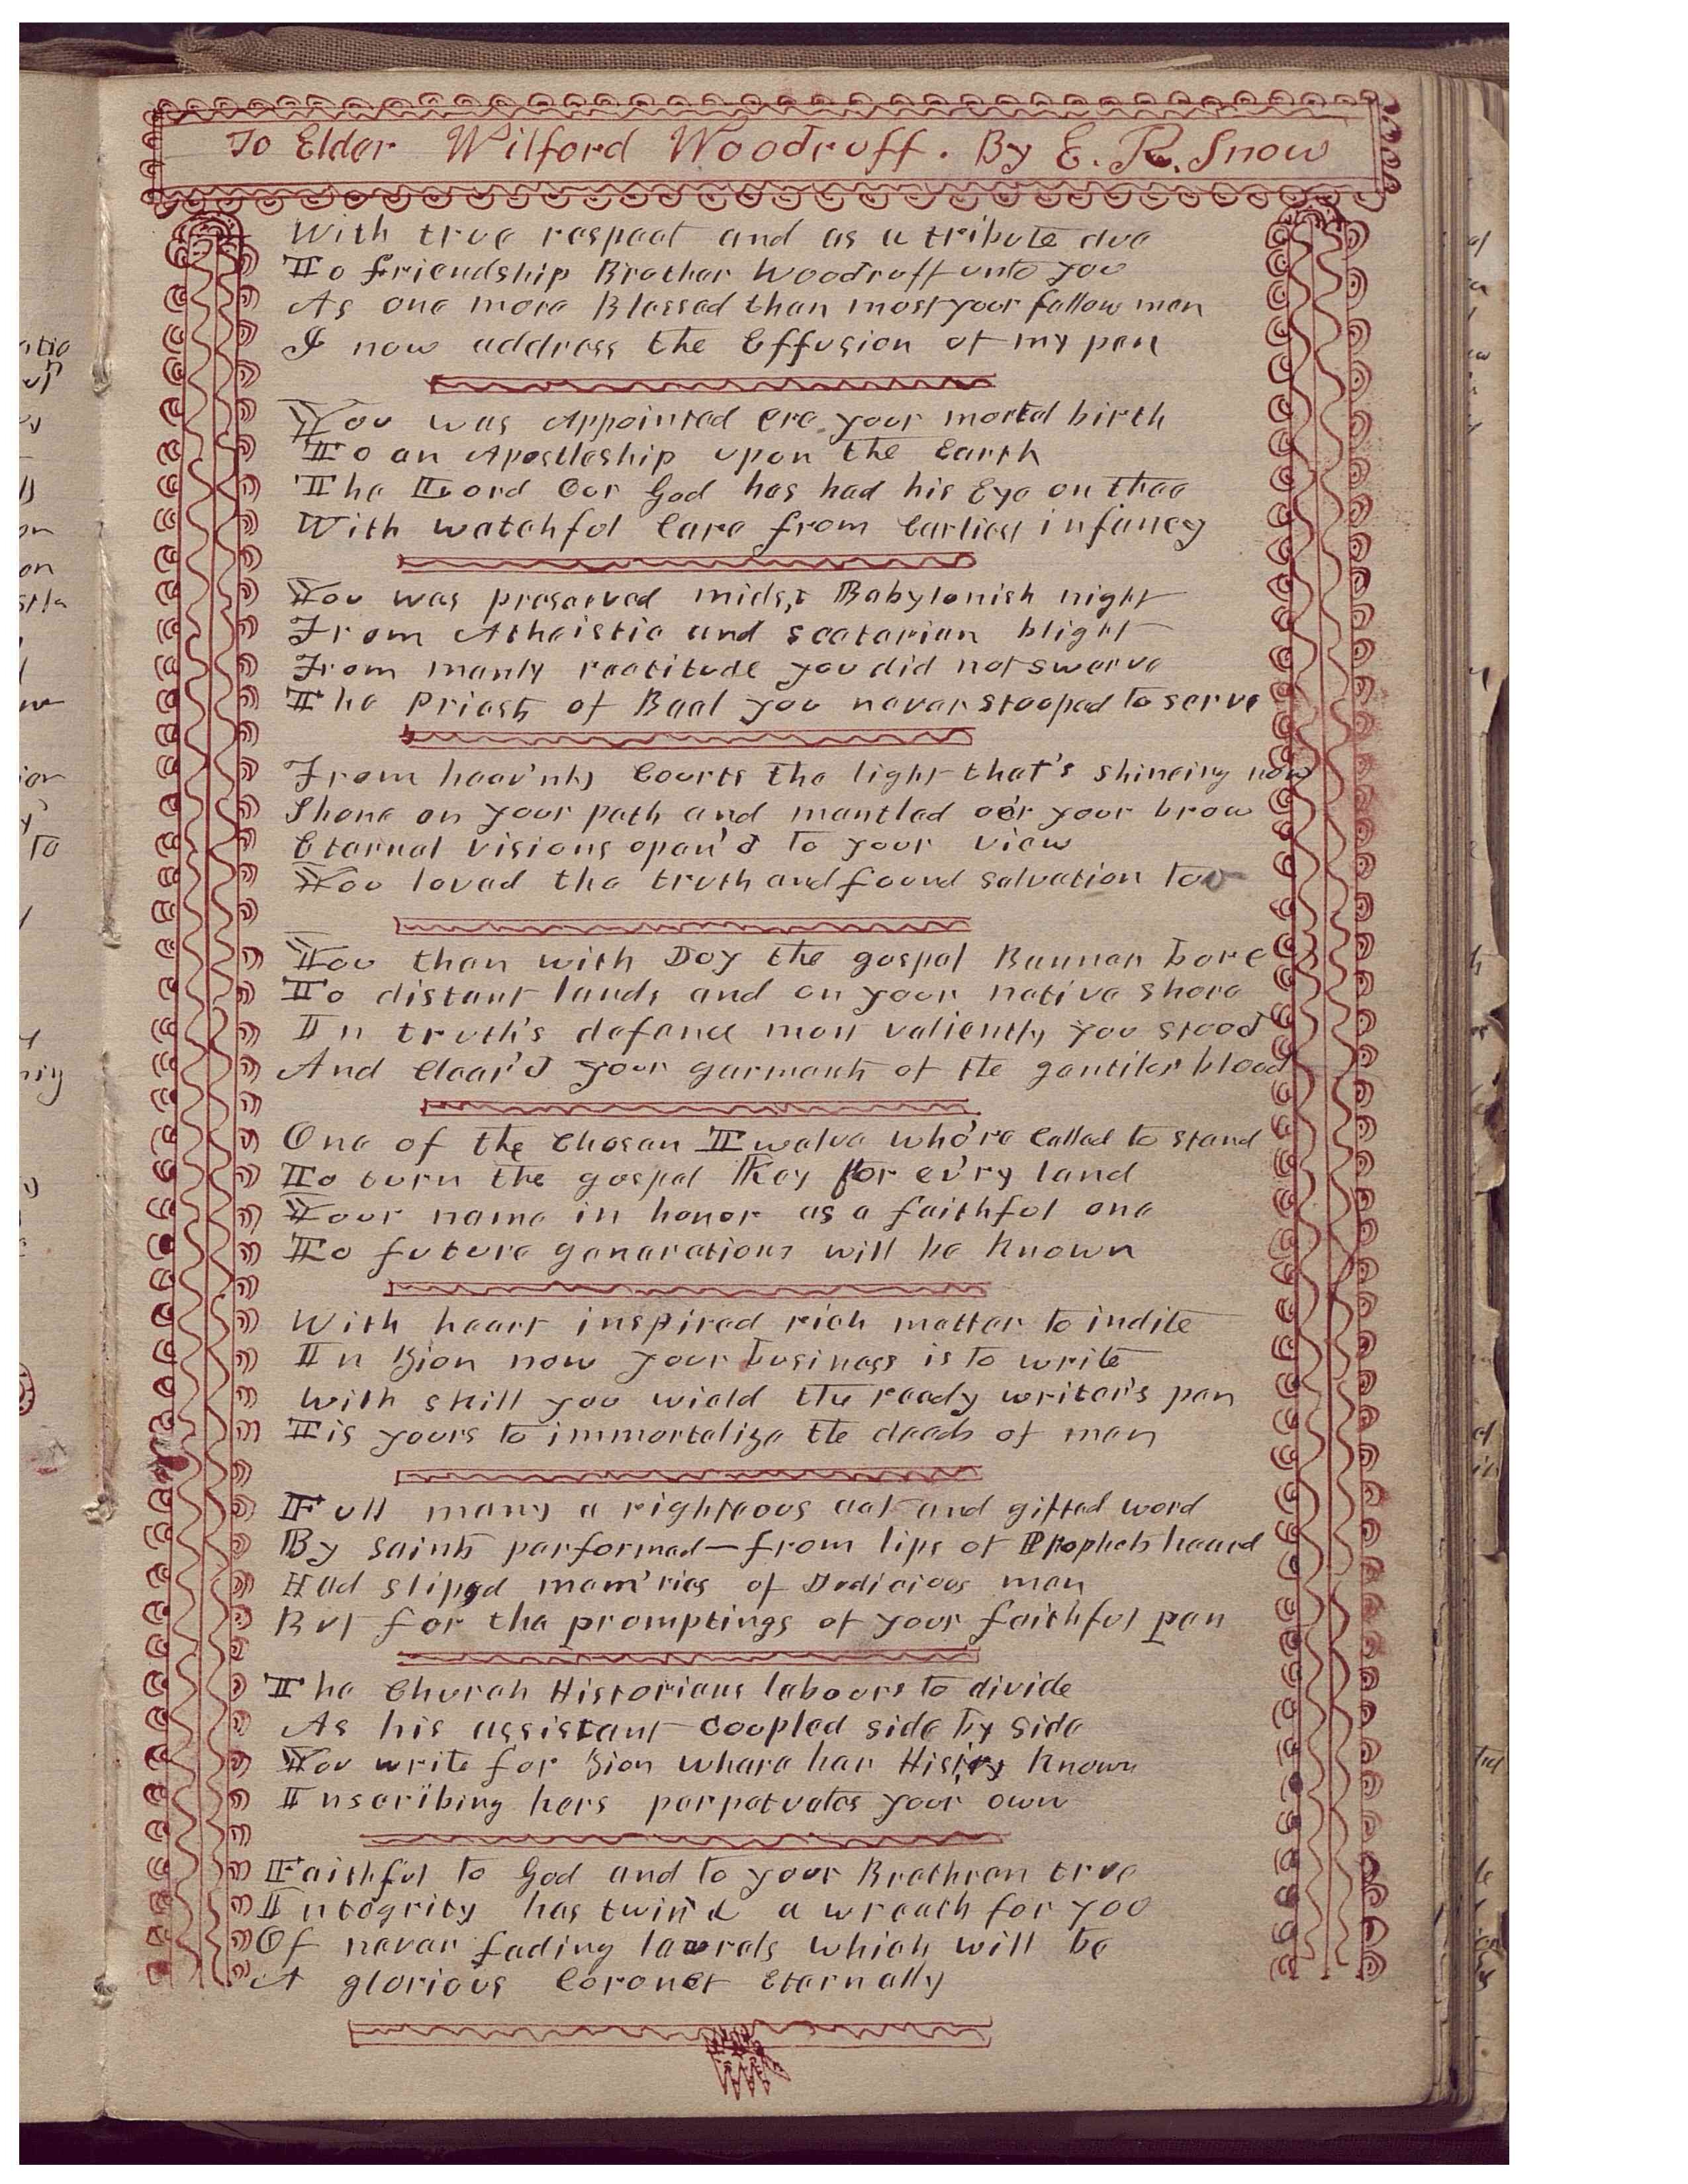 To Elder Wilford Woodruff. By E. R. Snow
With true respect and as a tribute due
To friendship Brother Woodruff unto you
As one more Blessed than most your fellow men
I now address the Effusion of my pen
You was Appointed ere your mortal birth
To an Apostleship upon the Earth
The Lord Our God has had his Eye on thee
With watchful Care from Earliest infancy
You was preserved midst Babylonish night
From Atheistic and sectarian blight
From manly rectitude you did not swerve
The Priests of Baal you never stooped to serve
From heav'nly Courts the light that's shineing now
Shone on your path and mantled oe'r your brow
Eternal visions open'd to your view
You loved the truth and found salvation too
You then with Joy the gospel Banner bore
To distant lands and on your native shore
In truth's defence most valiently you stood
And Clear'd your garments of the gentiles blood
One of the Chosen Twelve who're Called to stand
To turn the gospel Key for ev'ry land
Your name in honor as a faithful one
To future generations will be Known
With heart inspired rich matter to indite
In Zion now your business is to write
With skill you wield the ready writer's pen
Tis yours to immortalize the deeds of men
Full many a righteous act and gifted word
By saints performed—from lips of Prophets heard
Had sliped mem'ries of Judicious men
But for the promptings of your faithful pen
The Church Historians labours to divide
As his assistant Coupled side by side
You write for Zion where her Histry Known
Inscribing hers perpetuates your own
Faithful to God and to your Brethren true
Integrity has twin'd a wreath for you
Of never fading laurels which will be
A glorious Coronet Eternally